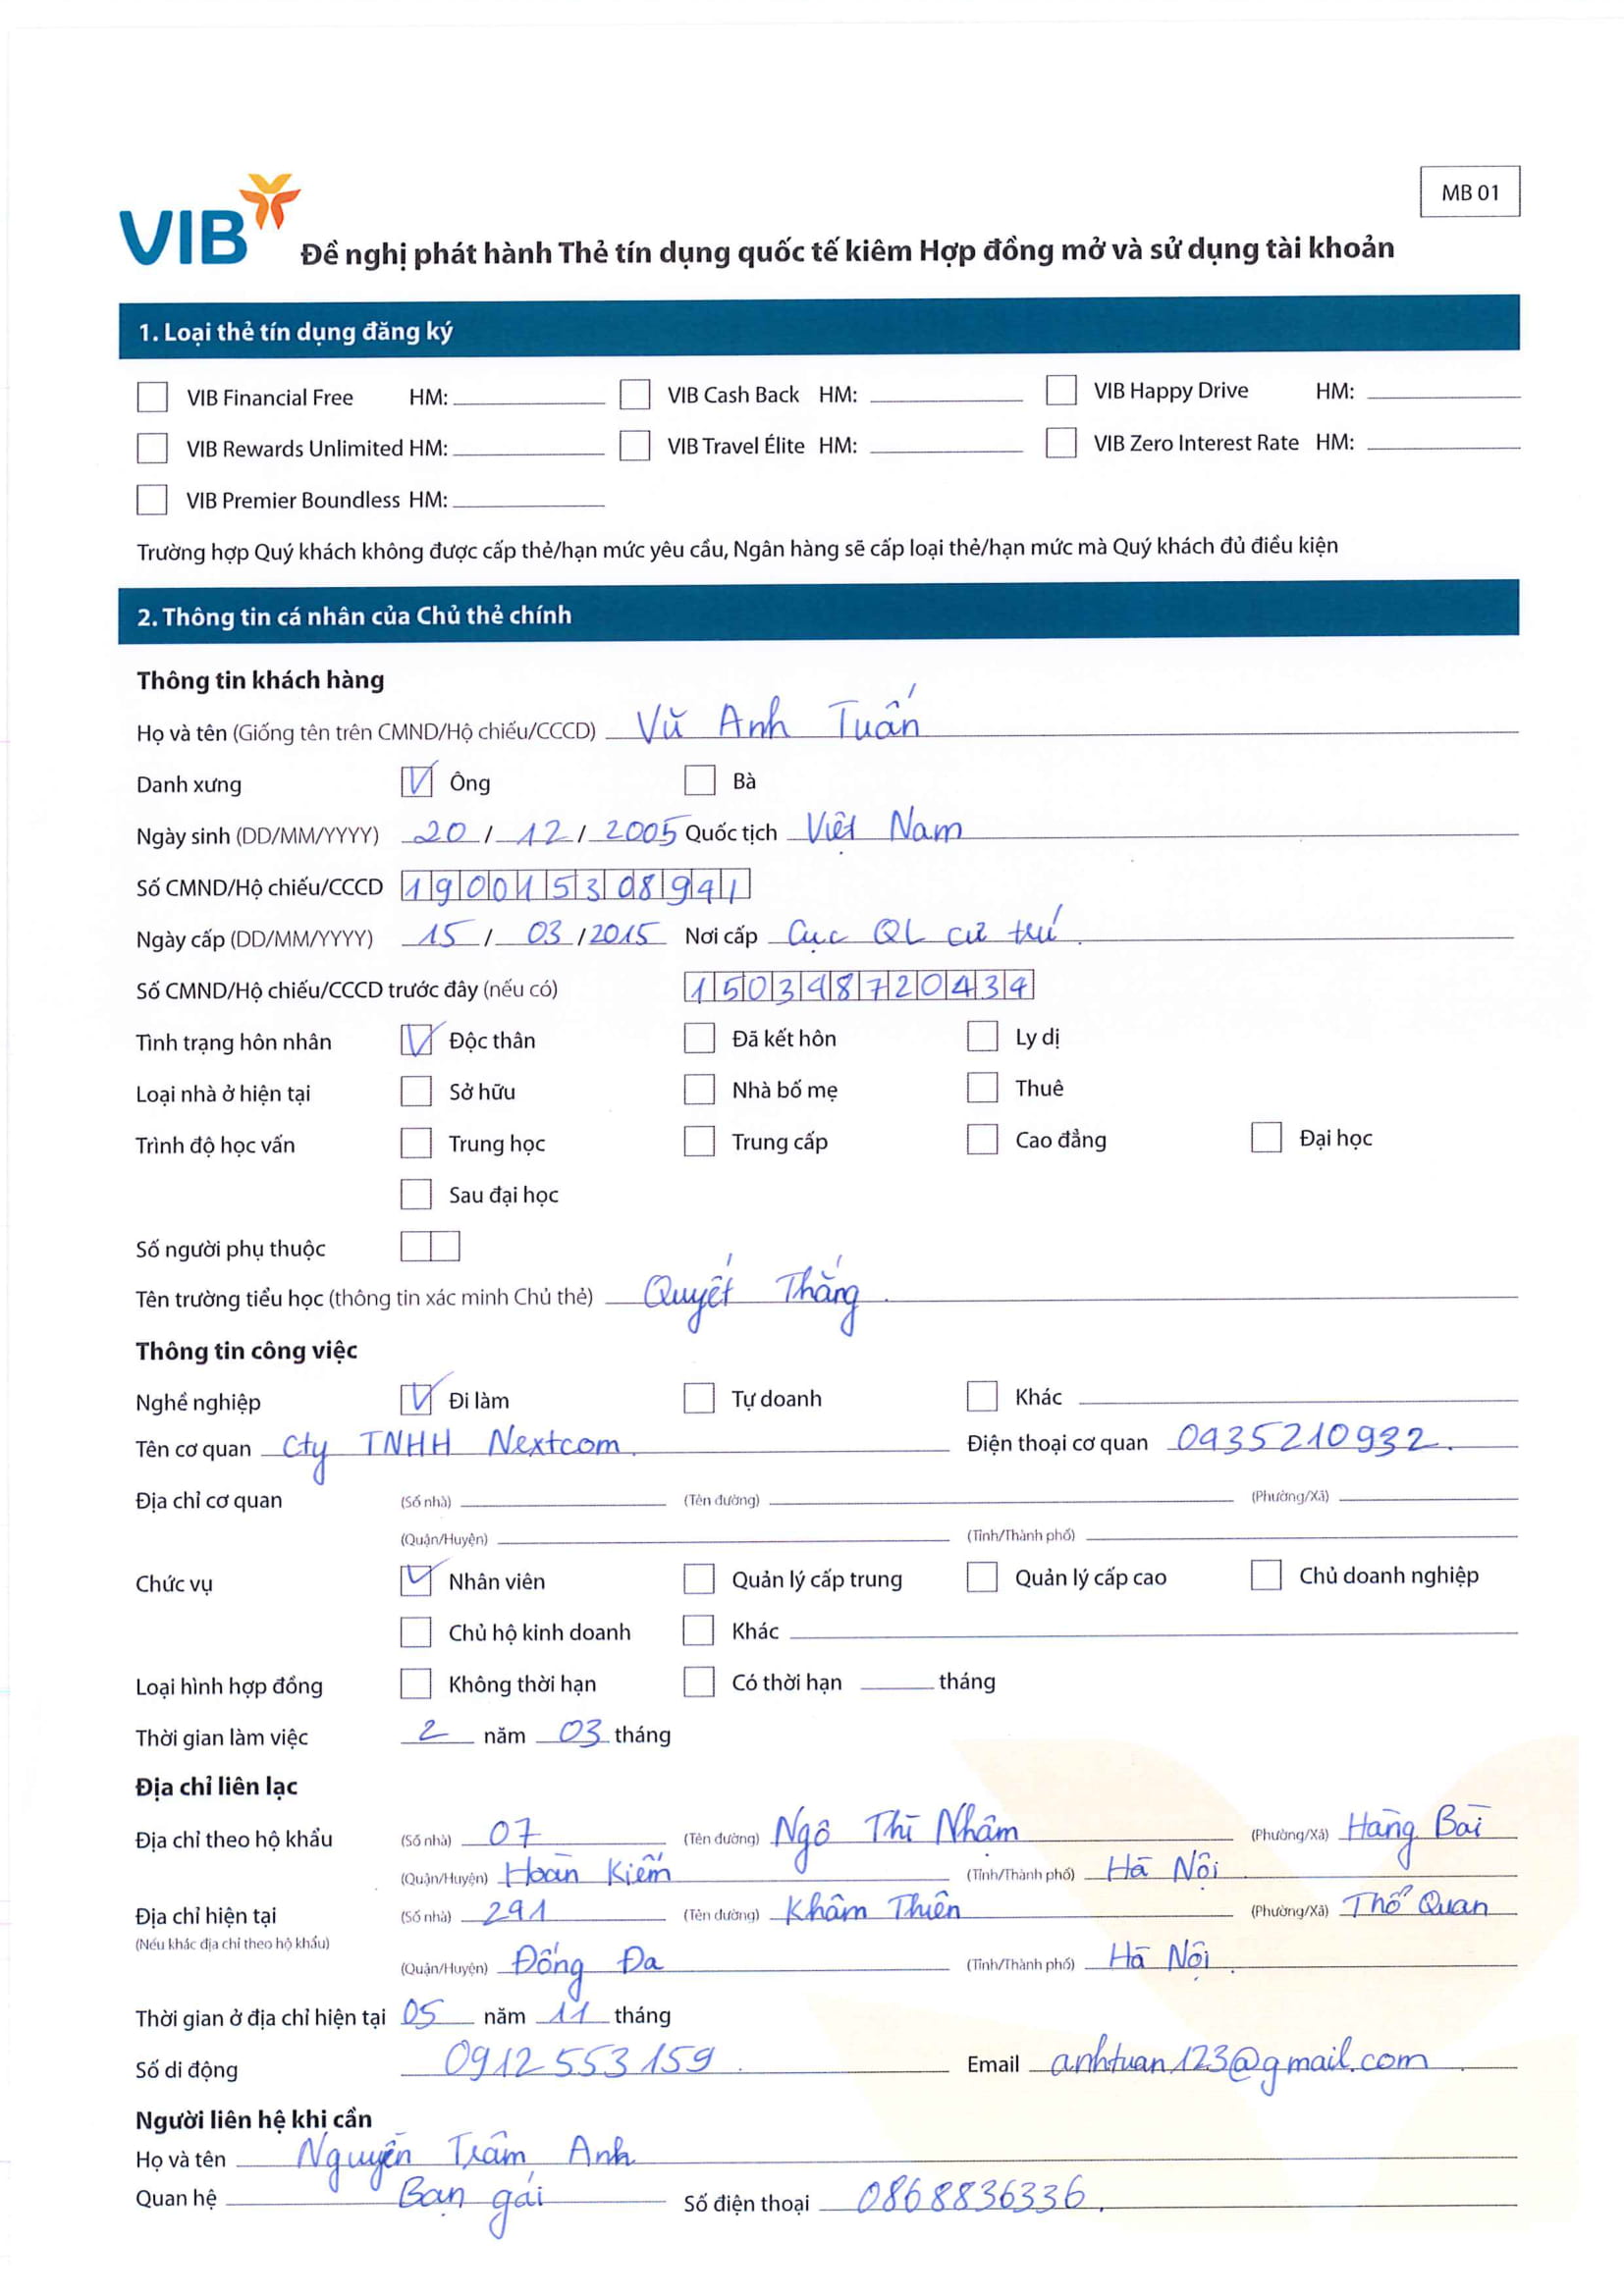 MB 01
VIB Đề nghị phát hành Thẻ tín dụng quốc tế kiêm Hợp đồng mở và sử dụng tài khoản
1. Loại thẻ tín dụng đăng ký
VIB Financial Free HM: VIB Cash Back HM: VIB Happy Drive HM:
VIB Rewards Unlimited HM: VIB Travel Élite HM: VIB Zero Interest Rate HM:
VIB Premier Boundless HM:
Trường hợp Quý khách không được cấp thẻ/hạn mức yêu cầu, Ngân hàng sẽ cấp loại thẻ/hạn mức mà Quý khách đủ điều kiện
2. Thông tin cá nhân của Chủ thẻ chính
Thông tin khách hàng
Họ và tên (Giống tên trên CMND/Hộ chiếu/CCCD) Vũ Anh Tuấn
Danh xưng V Ông Bà
Ngày sinh (DD/MM/YYYY) 20 / 12 / 2005 Quốc tịch Việt Nam
Số CMND/Hộ chiếu/CCCD 190015308941
Ngày cấp (DD/MM/YYYY) 15 / 03 / 2015 Nơi cấp Cục QL cư trú.
Số CMND/Hộ chiếu/CCCD trước đây (nếu có) 150348720434
Tình trạng hôn nhân V Độc thân Đã kết hôn Ly dị
Loại nhà ở hiện tại Sở hữu Nhà bố mẹ Thuê
Trình độ học vấn Trung học Trung cấp Cao đẳng Đại học
Sau đại học
Số người phụ thuộc
Tên trường tiểu học (thông tin xác minh Chủ thẻ) Quyết Thắng.
Thông tin công việc
Nghề nghiệp V Đi làm Tự doanh Khác
Tên cơ quan Cty TNHH Nextcom. Điện thoại cơ quan 0935210932.
Địa chỉ cơ quan (Số nhà) (Tên đường) (Phường/Xã)
(Quận/Huyện) (Tỉnh/Thành phố)
Chức vụ V Nhân viên Quản lý cấp trung Quản lý cấp cao Chủ doanh nghiệp
Chủ hộ kinh doanh Khác
Loại hình hợp đồng Không thời hạn Có thời hạn tháng
Thời gian làm việc 2 năm 03 tháng
Địa chỉ liên lạc
Địa chỉ theo hộ khẩu (Số nhà) 07 (Tên đường) Ngô Thì Nhậm (Phường/Xã) Hàng Bài
(Quận/Huyện) Hoàn Kiếm (Tỉnh/Thành phố) Hà Nội.
Địa chỉ hiện tại (Số nhà) 291 (Tên đường) Khâm Thiên (Phường/Xã) Thổ Quan
(Nếu khác địa chỉ theo hộ khẩu)
(Quận/Huyện) Đống Đa (Tỉnh/Thành phố) Hà Nội.
Thời gian ở địa chỉ hiện tại 05 năm 11 tháng
Số di động 0912553159. Email anhtuan123@gmail.com
Người liên hệ khi cần
Họ và tên Nguyễn Trâm Anh
Quan hệ Bạn gái Số điện thoại 0868836336.